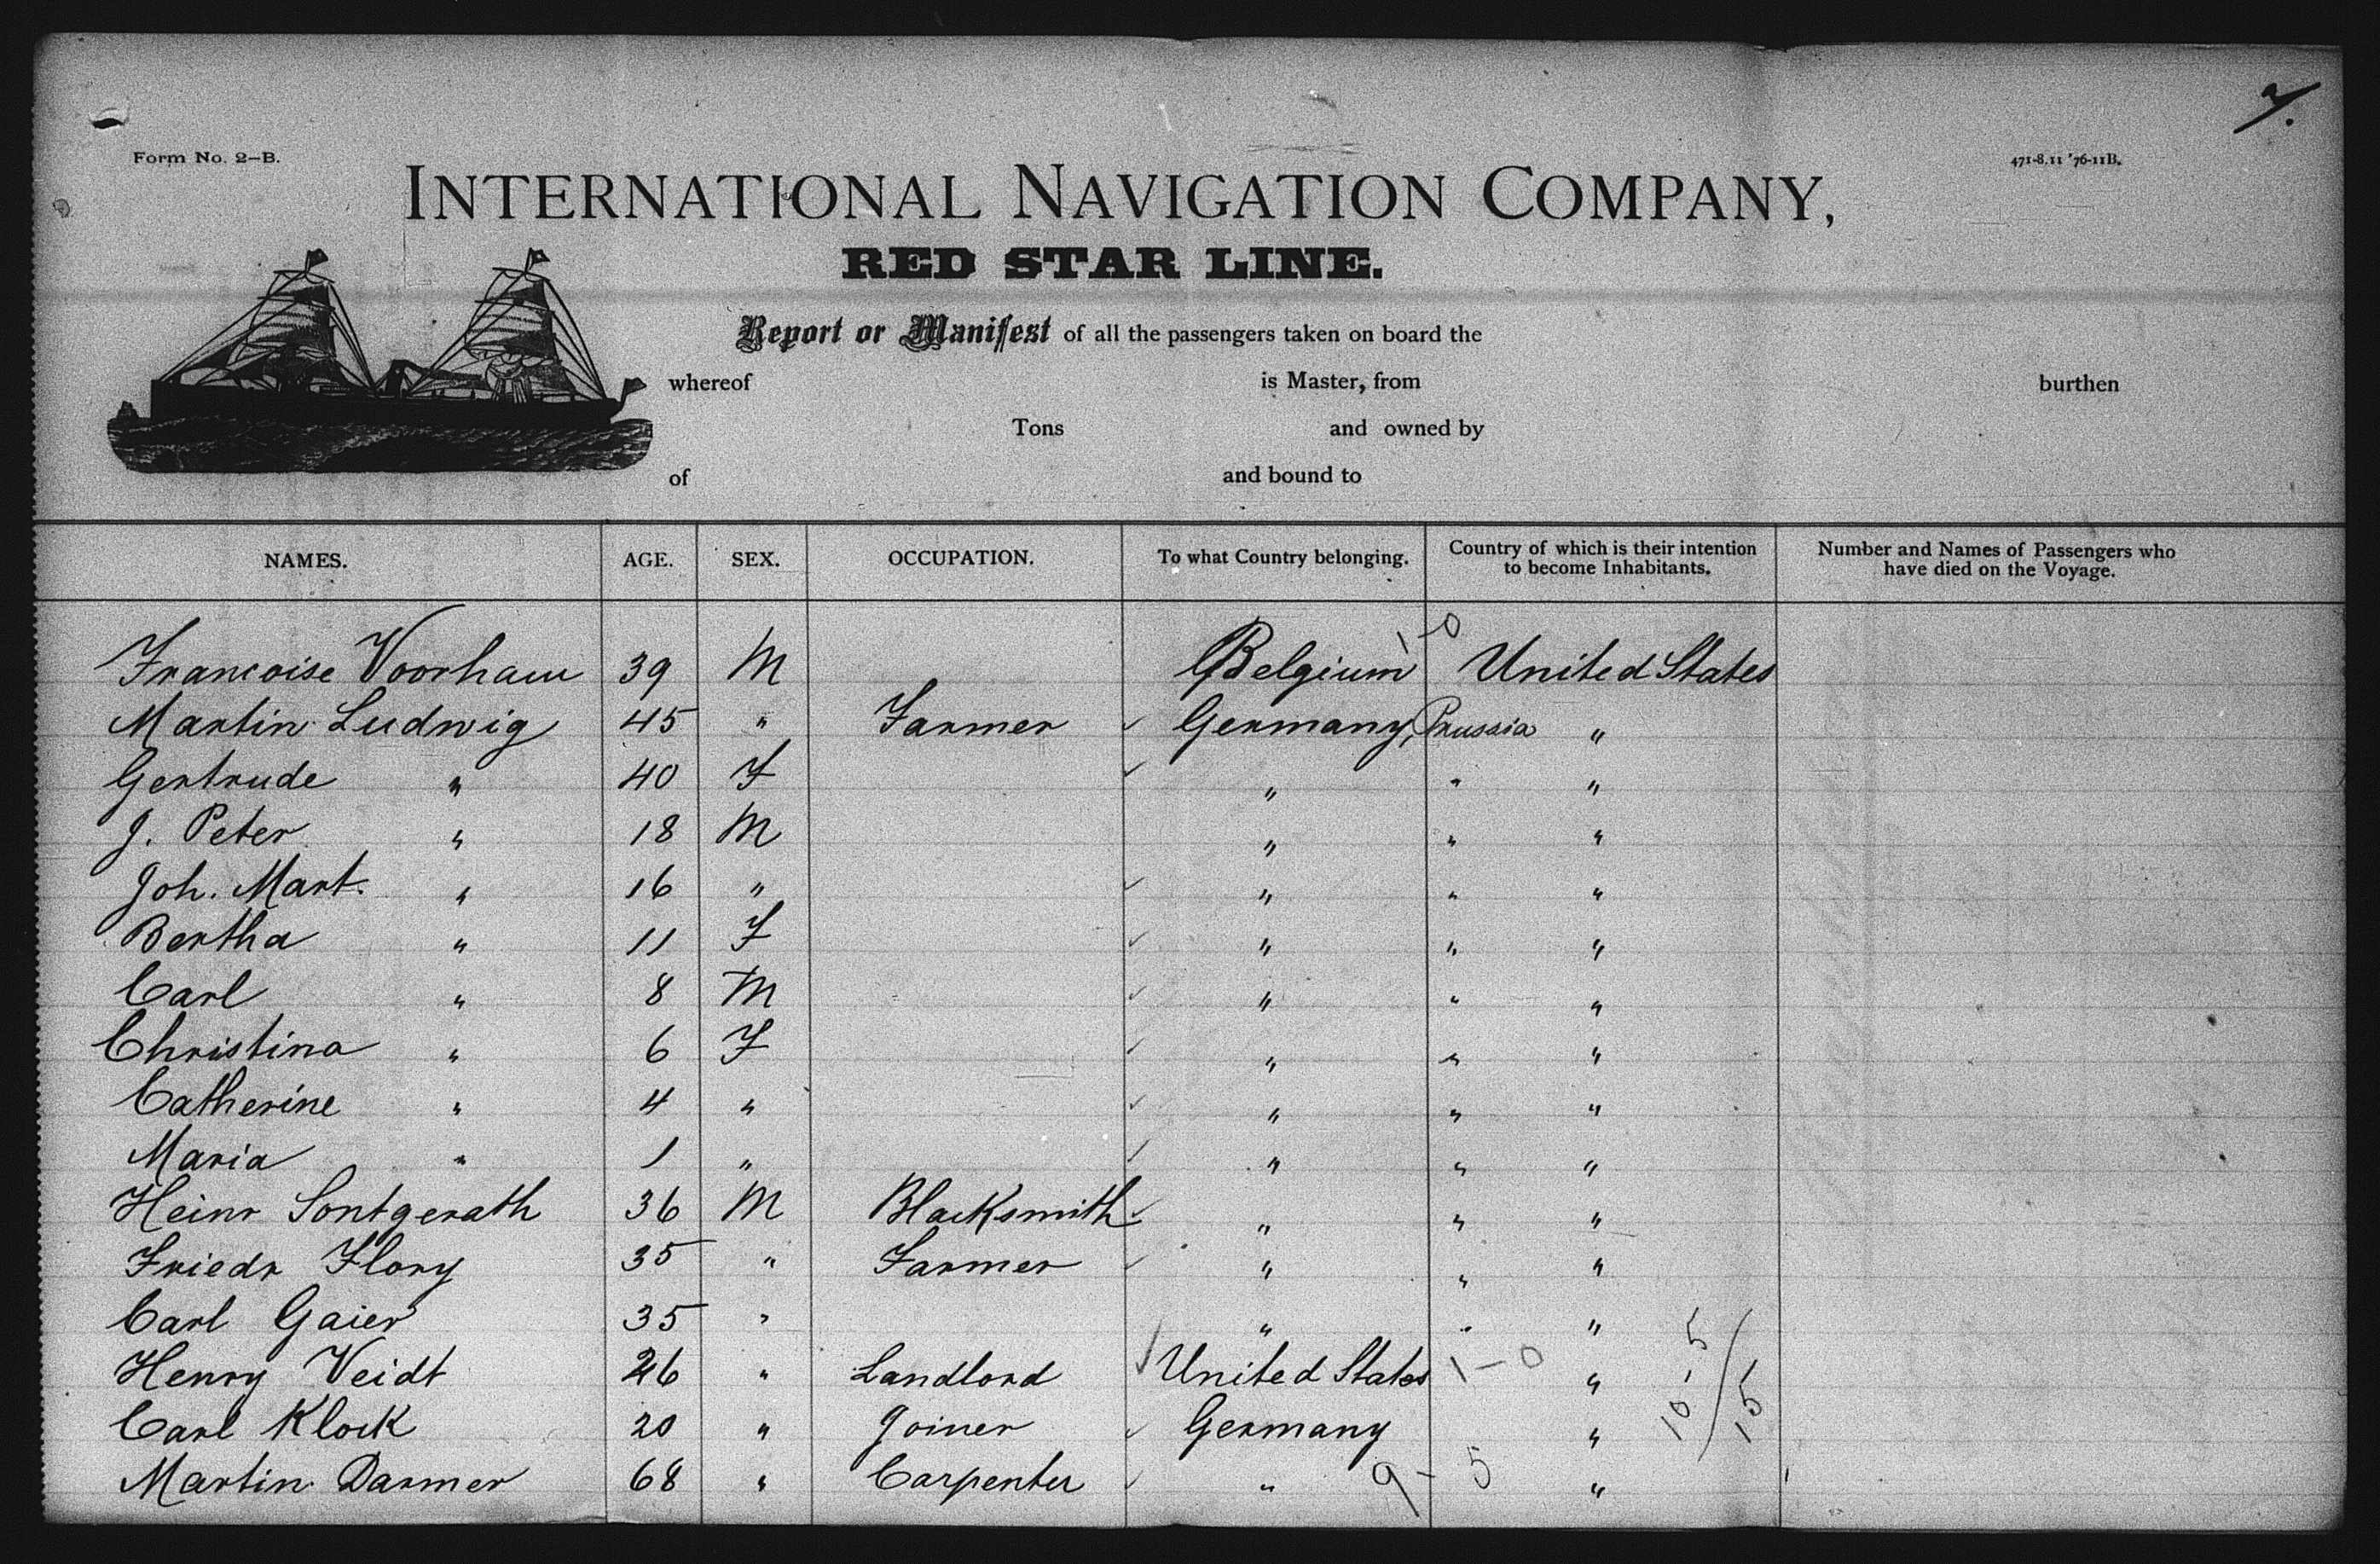 2.
Form No. 2–B.
471-8.11 '76-11B.
INTERNATIONAL NAVIGATION COMPANY,
RED STAR LINE.
Report or Manifest of all the passengers taken on board the
whereof is Master, from burthen
Tons and owned by
of and bound to
NAMES. AGE. SEX. OCCUPATION. To what Country belonging. Country of which is their intention to become Inhabitants. Number and Names of Passengers who have died on the Voyage.
1-0
Francoise Voorham 39 M Belgium United States
Martin Ludwig 45 " Farmer Germany, Prussia "
Gertrude " 40 F " " "
J. Peter " 18 M " " "
Joh. Mart. " 16 " " " "
Bertha " 11 F " " "
Carl " 8 M " " "
Christina " 6 F " " "
Catherine " 4 " " " "
Maria " 1 " " " "
Heinr Sontgerath 36 M Blacksmith " " "
Friedr Flory 35 " Farmer " " "
Carl Gaier 35 " " " "
Henry Veidt 26 " Landlord United States 1-0 " 10-5/15
Carl Klock 20 " Joiner Germany "
Martin Darmer 68 " Carpenter " 9-5 "